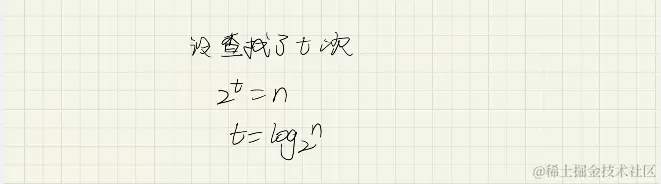 设查找了t次
2^t=n
t=log₂n
@稀土掘金技术社区